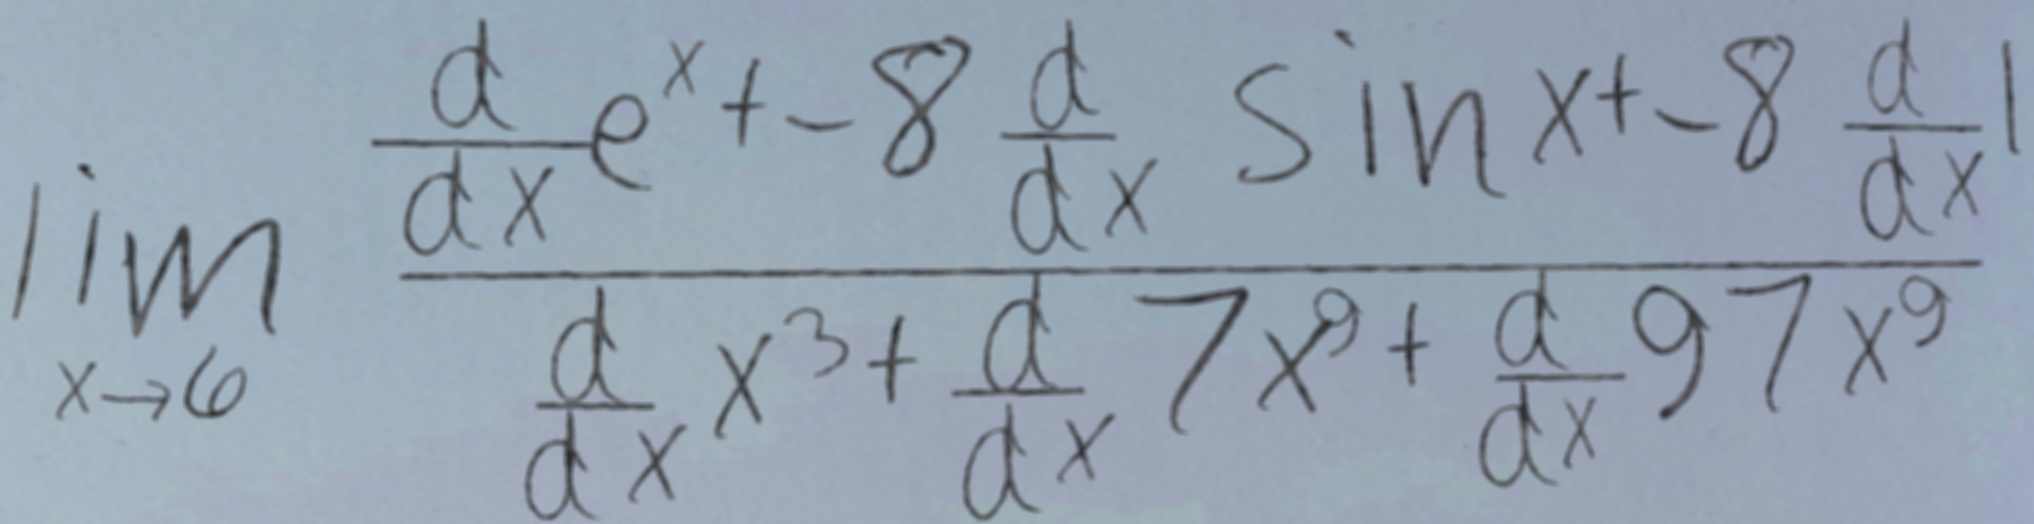 \lim_{x \to 6} \frac{\frac{d}{dx} e^{x} + -8 \frac{d}{dx} \sin x + -8 \frac{d}{dx} 1}{\frac{d}{dx} x^{3} + \frac{d}{dx} 7x^{9} + \frac{d}{dx} 97x^{9}}